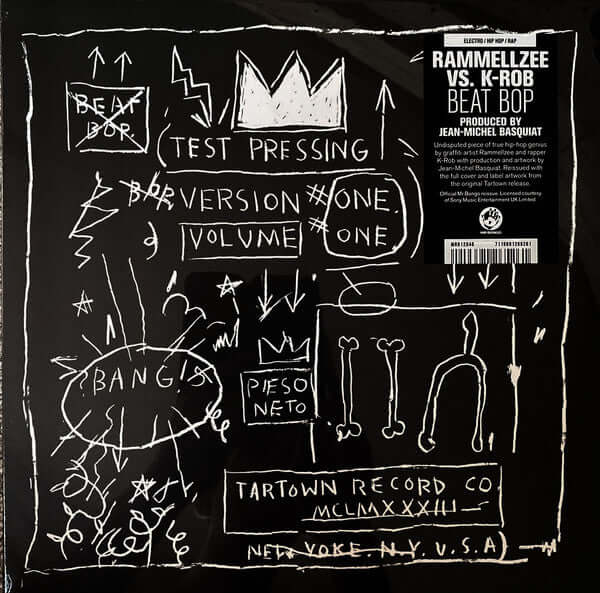 BEAT
BOP
(TEST PRESSING)
BOP VERSION # ONE.
VOLUME # ONE.
!BANG!
PIESO
NETO
TARTOWN RECORD CO.
MCLMXXXIII
NEW YOKE. N.Y. U.S.A)
ELECTRO / HIP HOP / RAP
RAMMELLZEE
VS. K-ROB
BEAT BOP
PRODUCED BY
JEAN-MICHEL BASQUIAT
Undisputed piece of true hip-hop genius
by graffiti artist Rammellzee and rapper
K-Rob with production and artwork by
Jean-Michel Basquiat. Reissued with
the full cover and label artwork from
the original Tartown release.
Official Mr Bongo reissue. Licensed courtesy
of Sony Music Entertainment UK Limited